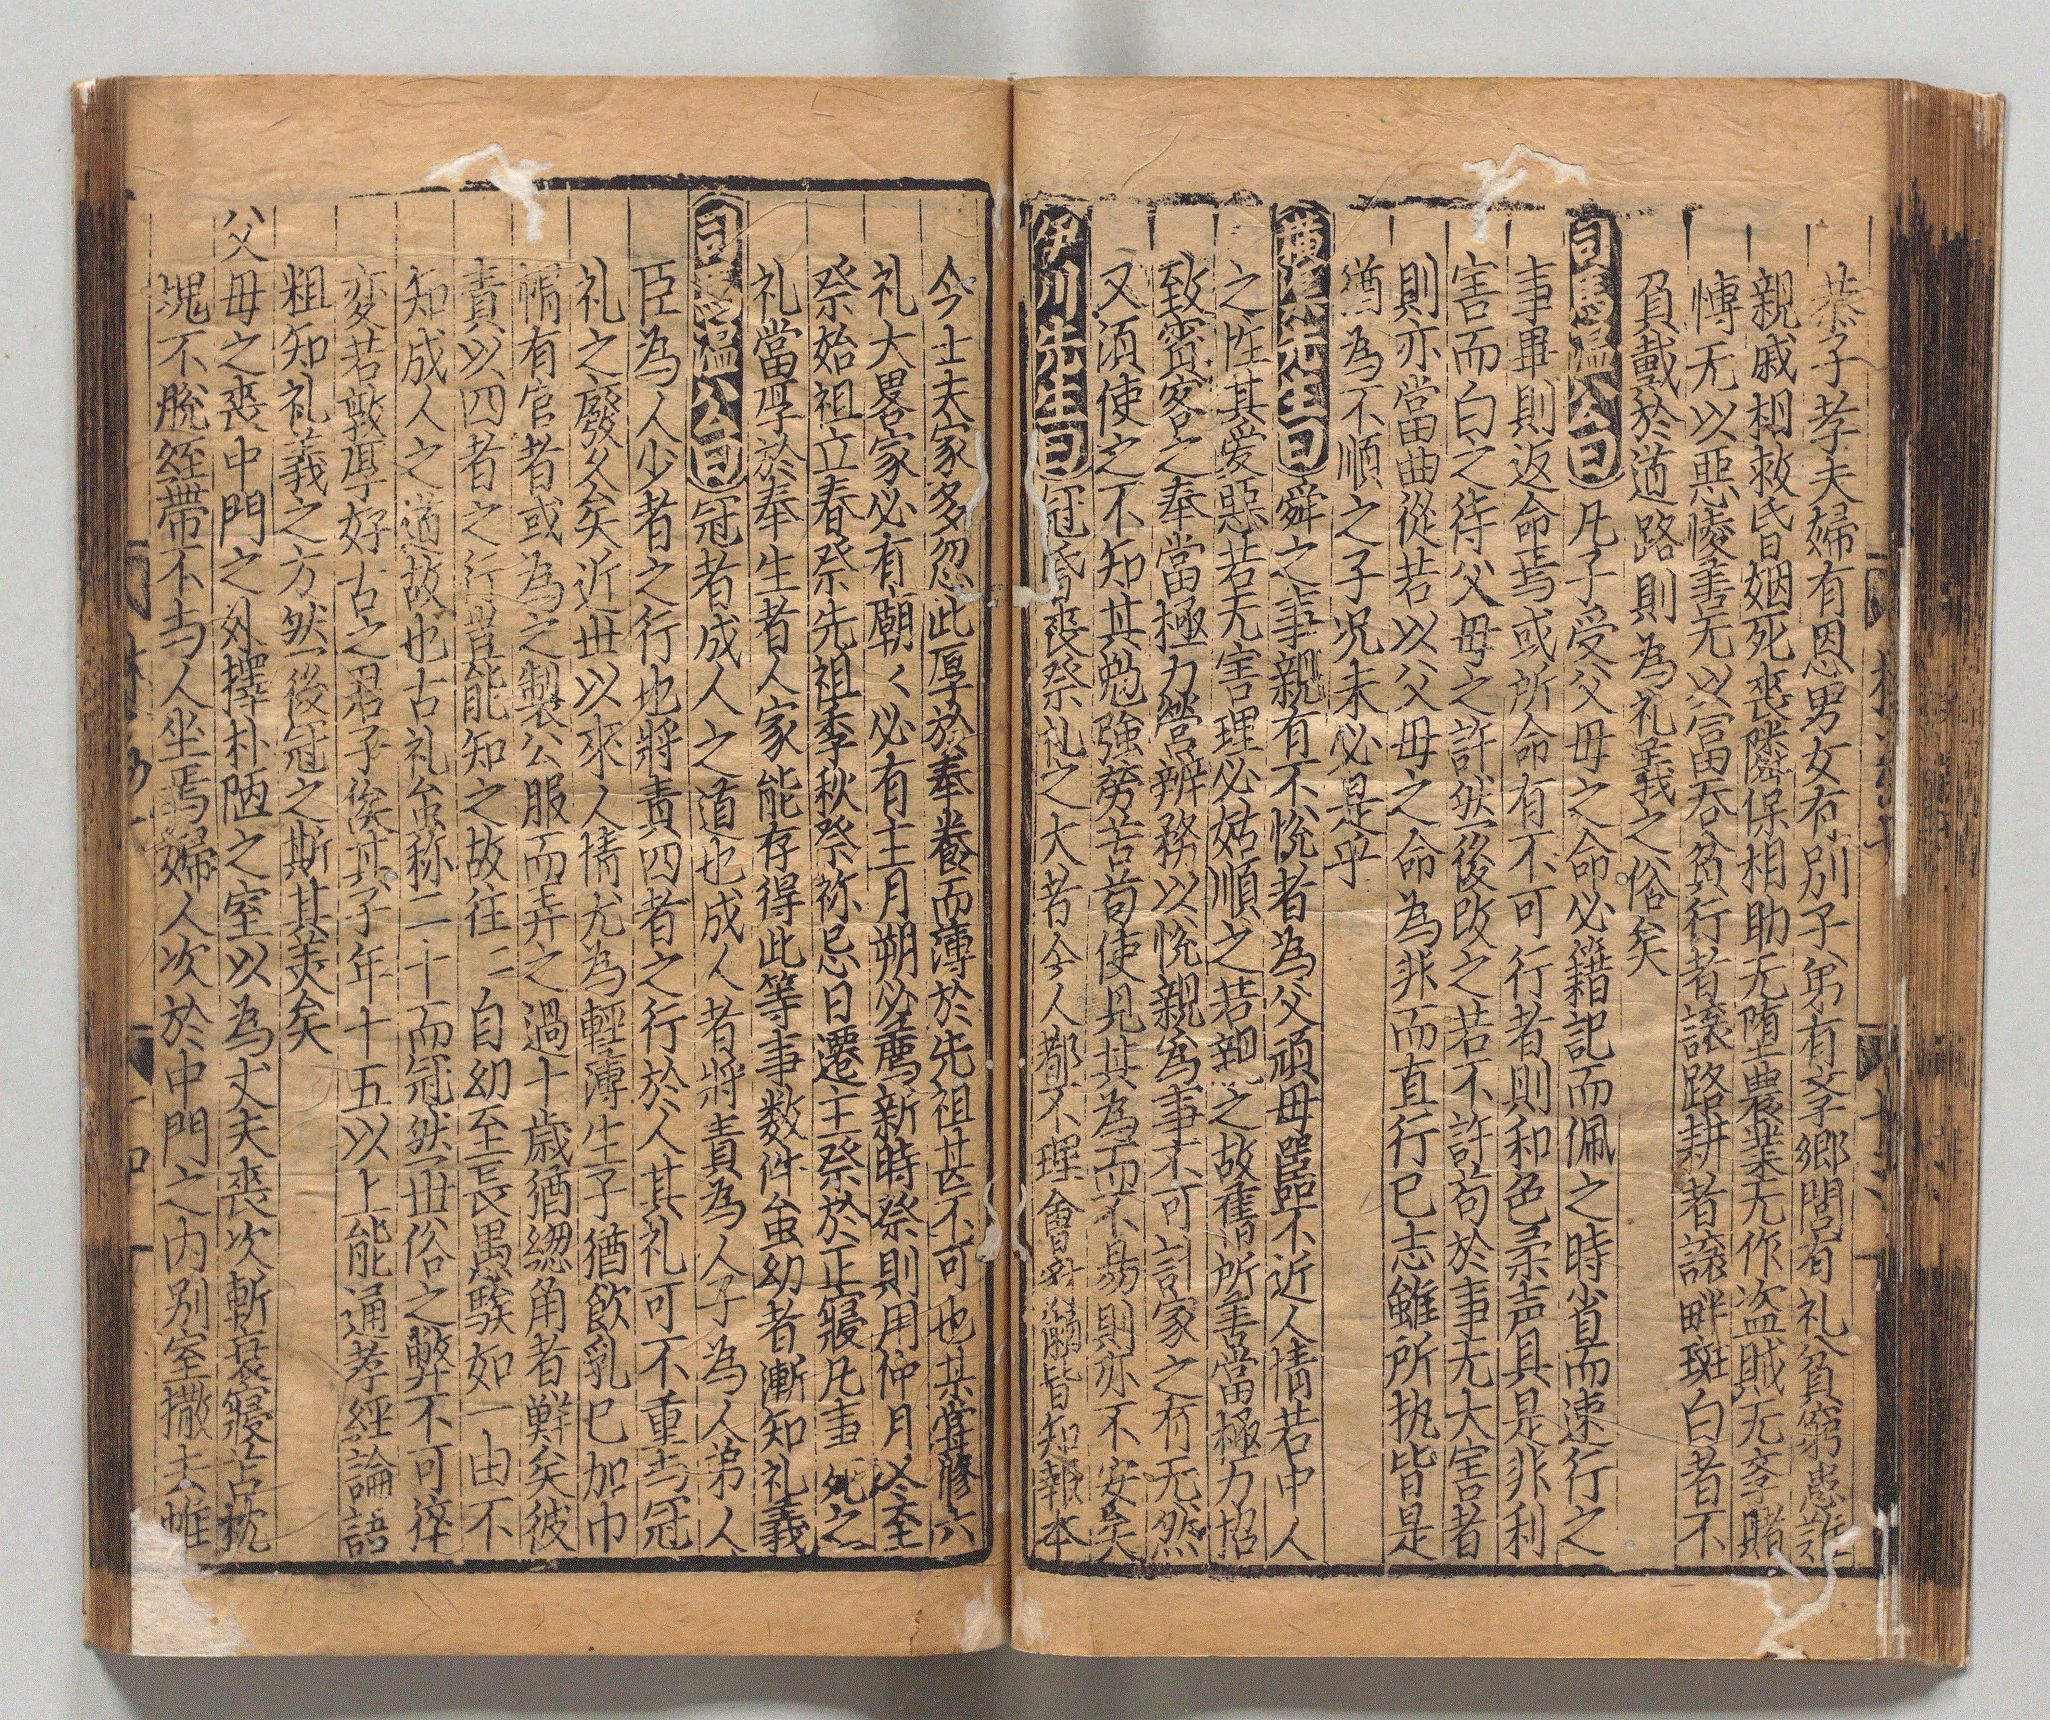 恭子孝夫婦有恩男女有別子弟有李鄉閭有礼貧窮患難
親戚相救昏姻死喪隣保相助无堕農業无作盗賊无李賭
愽无以惡凌善无以富吞貧行者讓路耕者讓畔斑白者不
負戴於道路則為礼義之俗矣
司馬温公曰凡子受父母之命必籍記而佩之時省而速行之
事畢則返命焉或所命有不可行者則和色柔声具是非利
害而白之待父母之許然後改之若不許茍於事无大害者
則亦當曲從若以父母之命為非而直行己志雖所执皆是
猶為不順之子况未必是乎
横渠先生曰舜之事親有不悅者為父頑母嚚不近人情若中人
之性其爱惡若无害理必姑順之若親之故舊所善當極力招
致賓客之奉當極力營辨務以悅親為事不可計家之有无然
又須使之不知其勉強勞苦茍使見其為而不易則亦不安矣
伊川先生曰冠昏喪祭礼之大者今人都不理會豺獺皆知報本
今士夫家多忽此厚於奉養而薄於先祖甚不可也某嘗修六
礼大畧家必有廟〻必有主月朔必薦新時祭則用仲月冬至
祭始祖立春祭先祖季秋祭祢忌日遷主祭於正寢凡事死之
礼當厚於奉生者人家能存得此等事数件虽幼者漸知礼義
司馬温公曰冠者成人之道也成人者將責為人子為人弟為人
臣為人少者之行也將責四者之行於人其礼可不重与冠
礼之廢久矣近丗以來人情尤為輕薄生子猶飲乳已加巾
帽有官者或為之製公服而弄之過十歳猶緫角者鮮矣彼
責以四者之行豈能知之故往〻自幼至長愚騃如一由不
知成人之道故也古礼虽称二十而冠然丗俗之弊不可猝
変若敦厚好古之君子俟其子年十五以上能通孝經論語
粗知礼義之方然後冠之斯其美矣
父母之喪中門之外擇朴陋之室以為丈夫喪次斬衰寢苫枕
塊不脫絰帶不与人坐焉婦人次於中門之内別室撒去帷